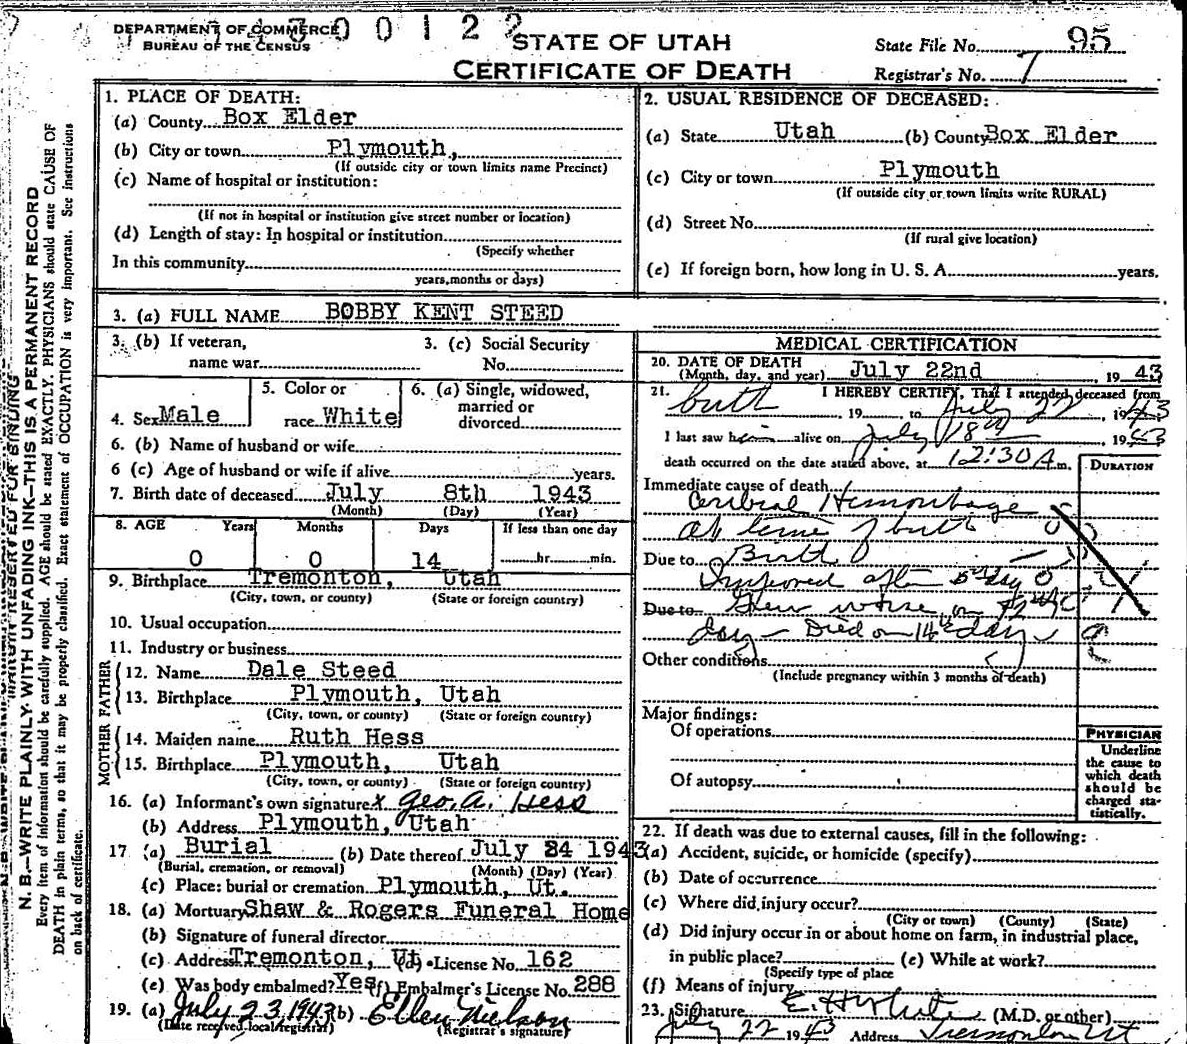 DEPARTMENT OF COMMERCE
BUREAU OF THE CENSUS
300122
STATE OF UTAH
CERTIFICATE OF DEATH
State File No. 95
Registrar's No. 7
N. B.—WRITE PLAINLY WITH UNFADING INK—THIS IS A PERMANENT RECORD
Every item of information should be carefully supplied. AGE should be stated EXACTLY. PHYSICIANS should state CAUSE OF
DEATH in plain terms, so that it may be properly classified. Exact statement of OCCUPATION is very important. See instructions
on back of certificate.
1. PLACE OF DEATH:
(a) County Box Elder
(b) City or town Plymouth,
(If outside city or town limits name Precinct)
(c) Name of hospital or institution:
(If not in hospital or institution give street number or location)
(d) Length of stay: In hospital or institution
(Specify whether
In this community
years, months or days)
2. USUAL RESIDENCE OF DECEASED:
(a) State Utah (b) County Box Elder
(c) City or town Plymouth
(If outside city or town limits write RURAL)
(d) Street No.
(If rural give location)
(e) If foreign born, how long in U. S. A. years.
3. (a) FULL NAME BOBBY KENT STEED
3. (b) If veteran, 3. (c) Social Security
name war No.
4. Sex Male 5. Color or race White 6. (a) Single, widowed, married or divorced
6. (b) Name of husband or wife
6 (c) Age of husband or wife if alive years.
7. Birth date of deceased July 8th 1943
(Month) (Day) (Year)
8. AGE Years Months Days If less than one day
0 0 14 hr. min.
9. Birthplace Tremonton, Utah
(City, town, or county) (State or foreign country)
10. Usual occupation
11. Industry or business
FATHER
12. Name Dale Steed
13. Birthplace Plymouth, Utah
(City, town, or county) (State or foreign country)
MOTHER
14. Maiden name Ruth Hess
15. Birthplace Plymouth, Utah
(City, town, or county) (State or foreign country)
16. (a) Informant's own signature x Geo. A. Hess
(b) Address Plymouth, Utah
17 (a) Burial (b) Date thereof July 24 1943
(Burial, cremation, or removal) (Month) (Day) (Year)
(c) Place: burial or cremation Plymouth, Ut.
18. (a) Mortuary Shaw & Rogers Funeral Home
(b) Signature of funeral director
(c) Address Tremonton, Ut (d) License No. 162
(e) Was body embalmed? Yes (f) Embalmer's License No. 288
19. (a) July 23, 1943 (b) Ellen Nielson
(Date received local registrar) (Registrar's signature)
MEDICAL CERTIFICATION
20. DATE OF DEATH
(Month, day, and year) July 22nd 1943
21. I HEREBY CERTIFY, That I attended deceased from
birth 19 to July 22 1943
I last saw him alive on July 18th, 1943
death occurred on the date stated above, at 12:30 A.m.
DURATION
Immediate cause of death
Cerebral Hemorrhage
at time of birth
Due to Birth
Improved after 5th day
Due to Grew worse on
day - Died on 14th day
Other conditions
(Include pregnancy within 3 months of death)
Major findings:
Of operations
Of autopsy
PHYSICIAN
Underline
the cause to
which death
should be
charged sta-
tistically.
22. If death was due to external causes, fill in the following:
(a) Accident, suicide, or homicide (specify)
(b) Date of occurrence
(c) Where did injury occur?
(City or town) (County) (State)
(d) Did injury occur in or about home on farm, in industrial place,
in public place? (e) While at work?
(Specify type of place
(f) Means of injury
23. Signature (M.D. or other)
July 22 1943 Address Tremonton Ut